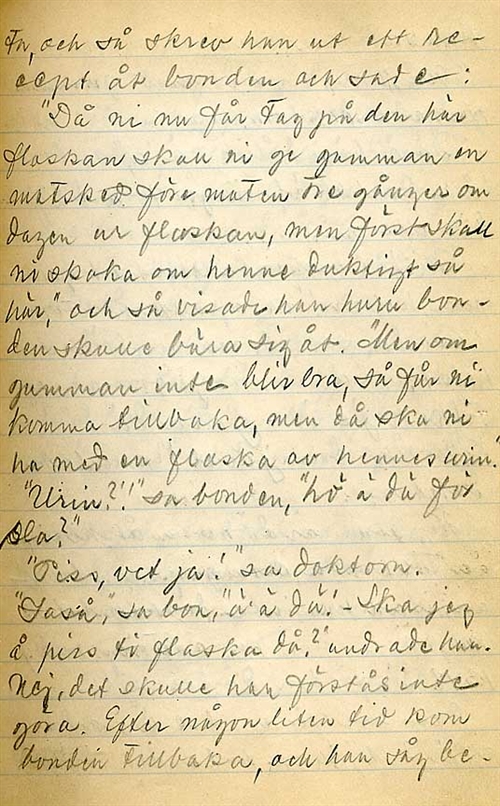 Ja, och så skrev han ut ett re-
cept åt bonden och sade:
"Då ni nu får tag på den här
flaskan skall ni ge gumman en
matsked före maten tre gånger om
dagen ur flaskan, men först skall
ni skaka om henne duktigt så
här," och så visade han huru bon-
den skulle bära sig åt. "Men om
gumman inte blir bra, så får ni
komma tillbaka, men då ska ni
ha med en flaska av hennes urin."
"Urin?!" sa bonden, "hô ä dä för
sla?"
"Piss, vet ja!" sa doktorn.
"Jaså," sa bon, "ä ä dä! - Ska jeg
å piss ti flaska då?" undrade han.
Nej, det skulle han förstås inte
göra. Efter någon liten tid kom
bonden tillbaka, och han såg be-